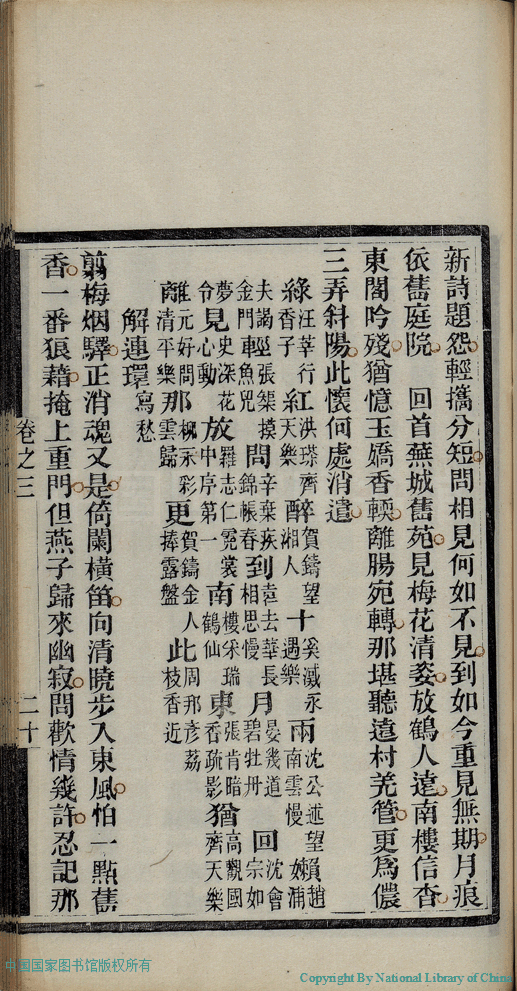 新詩題怨輕攜分短問相見何如不見到如今重見無期月痕
依舊庭院　回首蕪城舊苑見梅花清姿放鶴人遠南樓信杳
東閣吟殘猶憶玉嬌香輭離腸宛轉那堪聽遠村羌管更爲儂
三弄斜陽此懷何處消遣
綠汪莘行香子　紅洪瑹齊天樂　醉賀鑄望湘人　十奚㴒永遇樂　兩沈公述望南雲慢　嬾趙浦
夫謁金門　輕張榘摸魚兒　問辛棄疾錦帳春　到袁去華長相思慢　月晏幾道碧牡丹　回沈會宗如
夢令　見史深花心動　放羅志仁霓裳中序第一　南樓宋瑞鶴仙　東張肯暗香疏影　猶高觀國齊天樂
離元好問清平樂　那柳永彩雲歸　更賀鑄金人捧露盤　此周邦彥荔枝香近
解連環寫愁
翦梅烟驛正消魂又是倚闌橫笛向清曉步入東風怕一點舊
香一番狼藉掩上重門但燕子歸來幽寂問歡情幾許忍記那
卷之三
二十
中国国家图书馆版权所有
Copyright By National Library of China